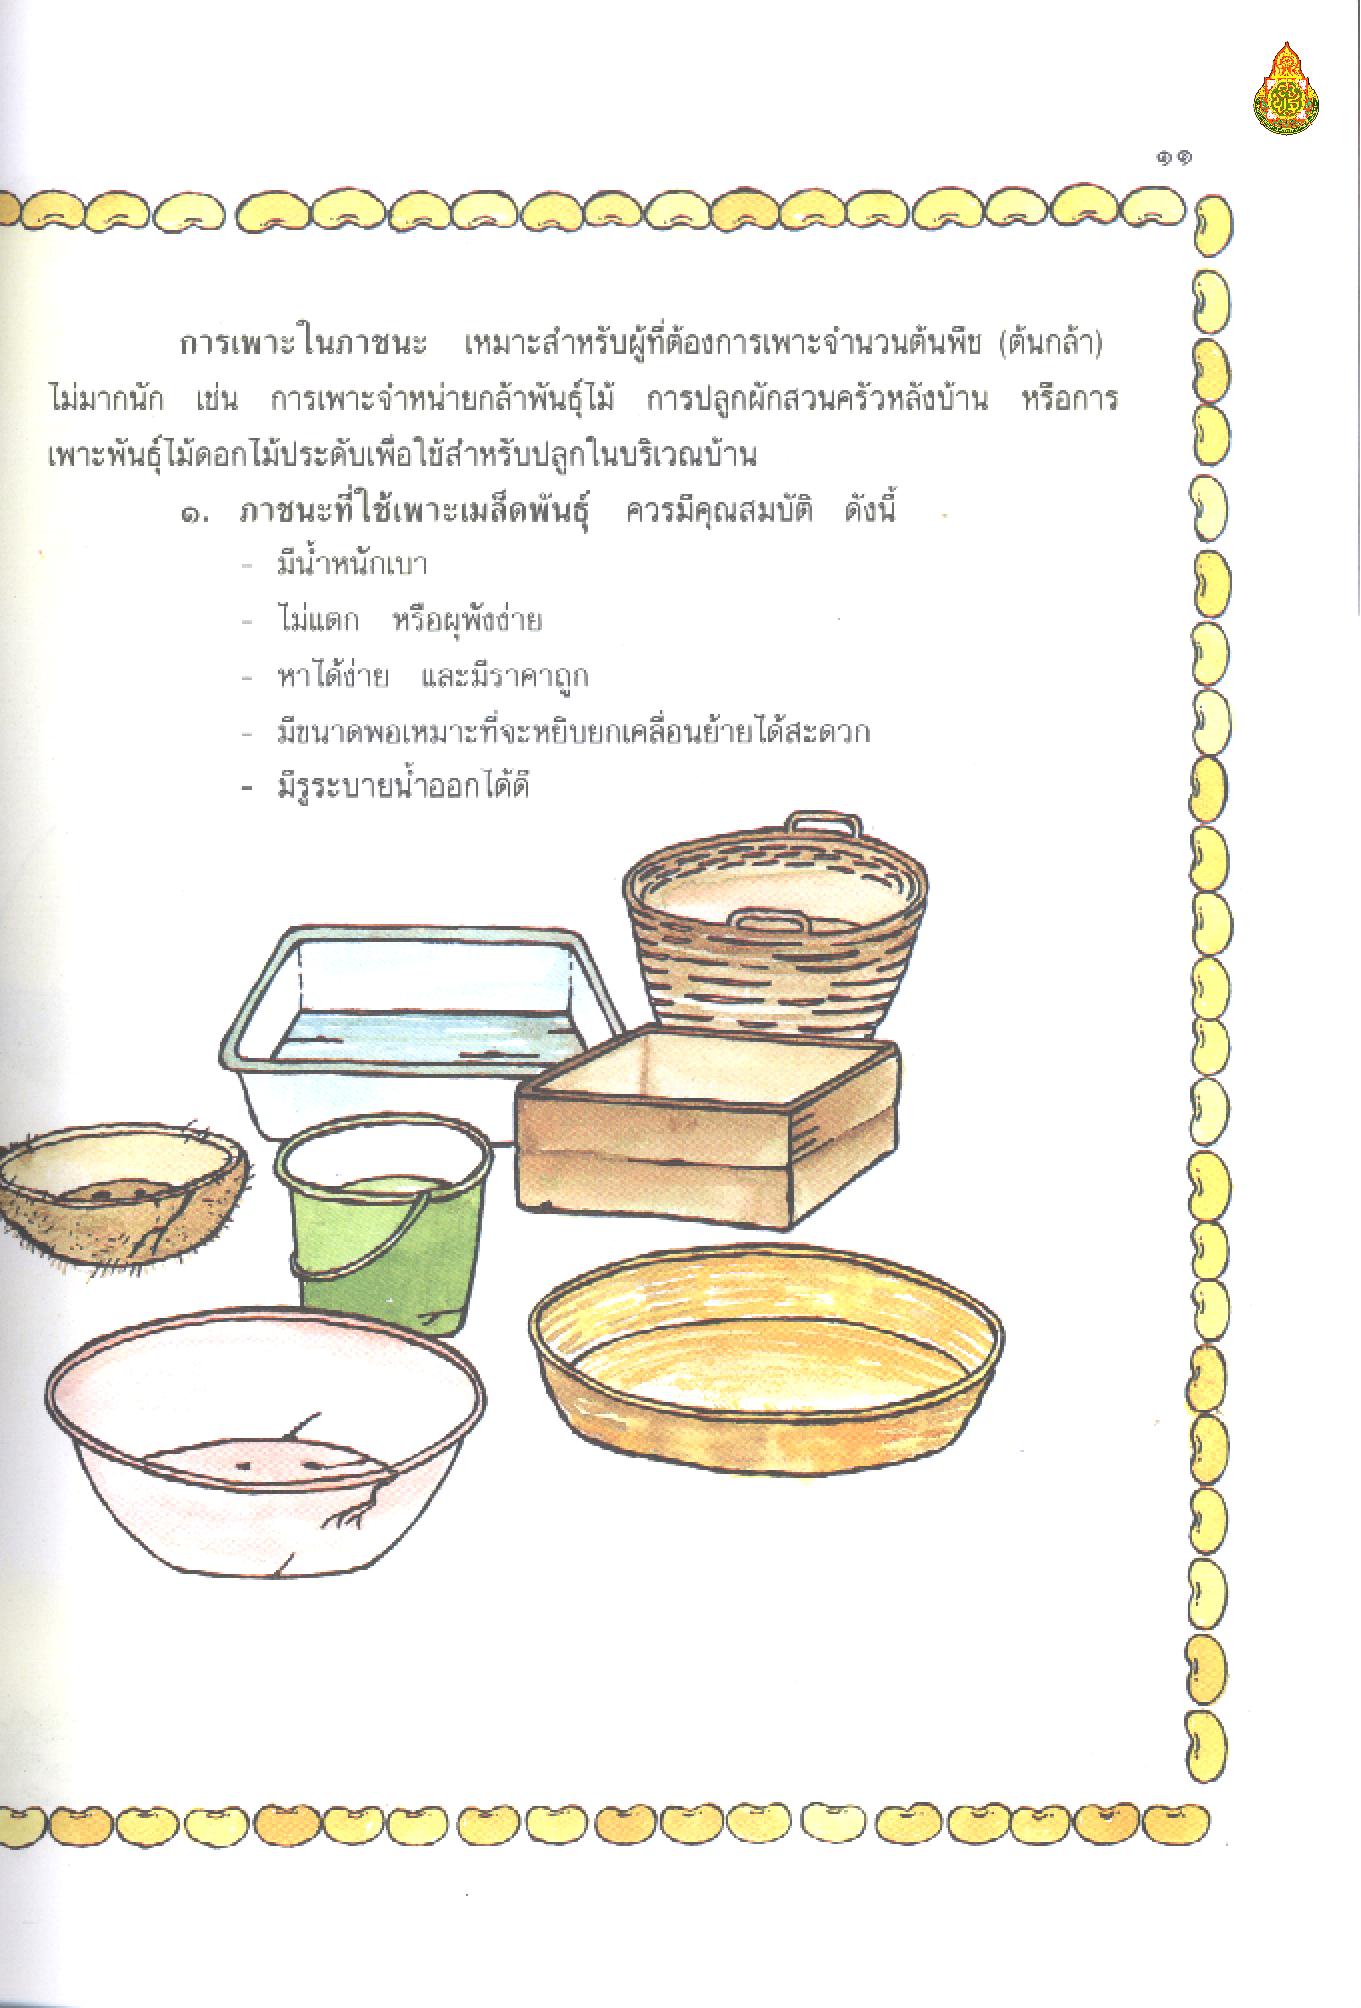 ๑๑
การเพาะในภาชนะ เหมาะสำหรับผู้ที่ต้องการเพาะจำนวนต้นพืช (ต้นกล้า)
ไม่มากนัก เช่น การเพาะจำหน่ายกล้าพันธุ์ไม้ การปลูกผักสวนครัวหลังบ้าน หรือการ
เพาะพันธุ์ไม้ดอกไม้ประดับเพื่อใช้สำหรับปลูกในบริเวณบ้าน
๑. ภาชนะที่ใช้เพาะเมล็ดพันธุ์ ควรมีคุณสมบัติ ดังนี้
- มีน้ำหนักเบา
- ไม่แตก หรือผุพังง่าย
- หาได้ง่าย และมีราคาถูก
- มีขนาดพอเหมาะที่จะหยิบยกเคลื่อนย้ายได้สะดวก
- มีรูระบายน้ำออกได้ดี